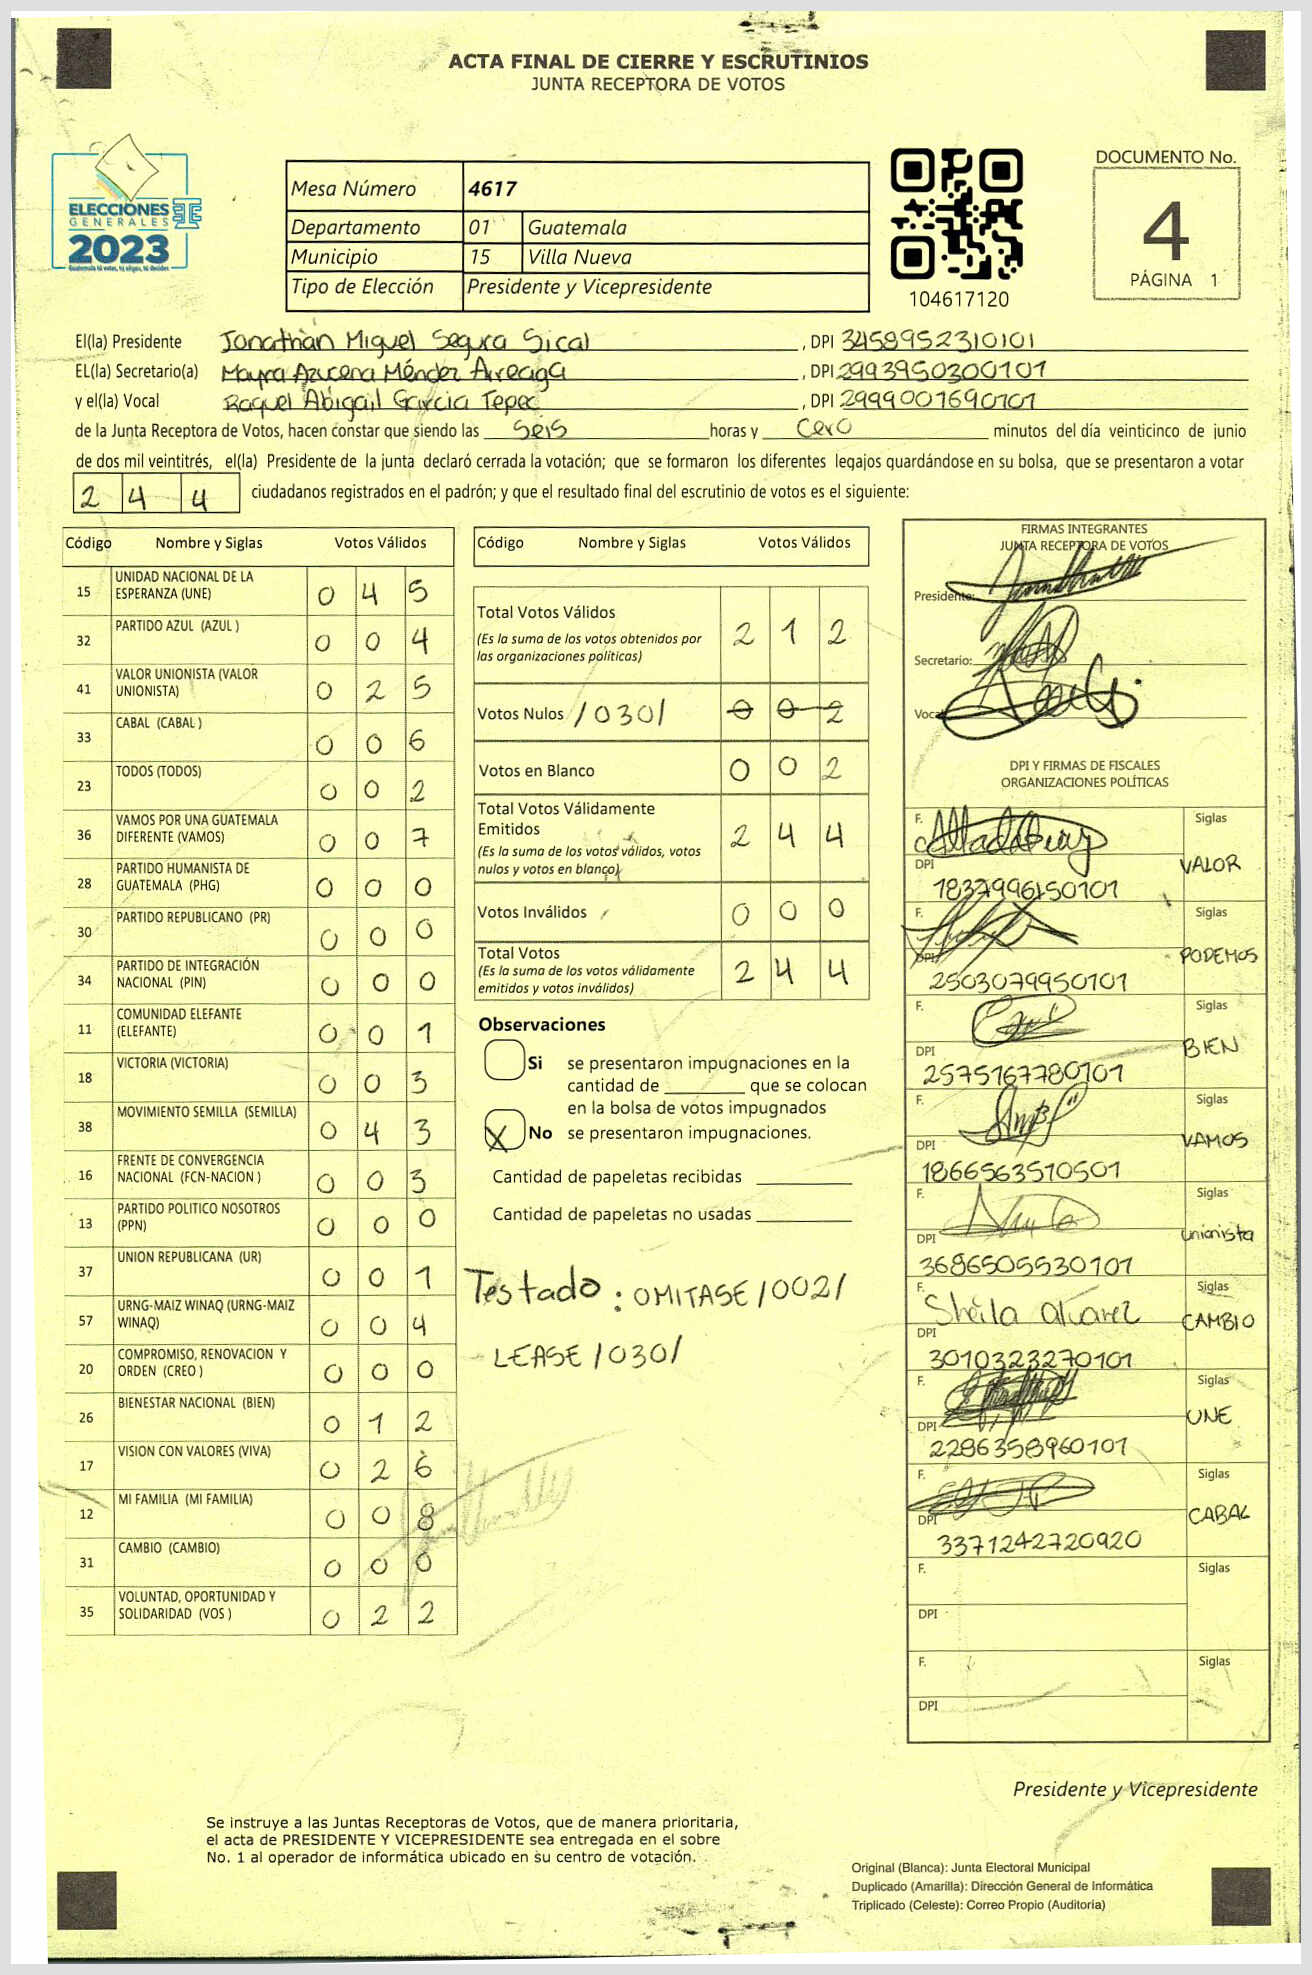 ACTA FINAL DE CIERRE Y ESCRUTINIOS
JUNTA RECEPTORA DE VOTOS
ELECCIONES
GENERALES
2023
Guatemala tú votas, tú eliges, tú decides
Mesa Número 4617
Departamento 01 Guatemala
Municipio 15 Villa Nueva
Tipo de Elección Presidente y Vicepresidente
104617120
DOCUMENTO No.
4
PÁGINA 1
El(la) Presidente Jonathán Miguel Segura Sical , DPI 3458952310101
EL(la) Secretario(a) Mayra Azucena Méndez Arreaga , DPI 2993950300101
y el(la) Vocal Raquel Abigail García Tepec , DPI 2999001690101
de la Junta Receptora de Votos, hacen constar que siendo las Seis horas y Cero minutos del día veinticinco de junio
de dos mil veintitrés, el(la) Presidente de la junta declaró cerrada la votación; que se formaron los diferentes legajos guardándose en su bolsa, que se presentaron a votar
2 4 4 ciudadanos registrados en el padrón; y que el resultado final del escrutinio de votos es el siguiente:
Código Nombre y Siglas Votos Válidos
15 UNIDAD NACIONAL DE LA ESPERANZA (UNE) 0 4 5
32 PARTIDO AZUL (AZUL ) 0 0 4
41 VALOR UNIONISTA (VALOR UNIONISTA) 0 2 5
33 CABAL (CABAL ) 0 0 6
23 TODOS (TODOS) 0 0 2
36 VAMOS POR UNA GUATEMALA DIFERENTE (VAMOS) 0 0 7
28 PARTIDO HUMANISTA DE GUATEMALA (PHG) 0 0 0
30 PARTIDO REPUBLICANO (PR) 0 0 0
34 PARTIDO DE INTEGRACIÓN NACIONAL (PIN) 0 0 0
11 COMUNIDAD ELEFANTE (ELEFANTE) 0 0 1
18 VICTORIA (VICTORIA) 0 0 3
38 MOVIMIENTO SEMILLA (SEMILLA) 0 4 3
16 FRENTE DE CONVERGENCIA NACIONAL (FCN-NACION ) 0 0 3
13 PARTIDO POLITICO NOSOTROS (PPN) 0 0 0
37 UNION REPUBLICANA (UR) 0 0 1
57 URNG-MAIZ WINAQ (URNG-MAIZ WINAQ) 0 0 4
20 COMPROMISO, RENOVACION Y ORDEN (CREO ) 0 0 0
26 BIENESTAR NACIONAL (BIEN) 0 1 2
17 VISION CON VALORES (VIVA) 0 2 6
12 MI FAMILIA (MI FAMILIA) 0 0 8
31 CAMBIO (CAMBIO) 0 0 0
35 VOLUNTAD, OPORTUNIDAD Y SOLIDARIDAD (VOS ) 0 2 2
Código Nombre y Siglas Votos Válidos
Total Votos Válidos 2 1 2
(Es la suma de los votos obtenidos por
las organizaciones políticas)
Votos Nulos /030/ 0 0 2
Votos en Blanco 0 0 2
Total Votos Válidamente
Emitidos 2 4 4
(Es la suma de los votos válidos, votos
nulos y votos en blanco)
Votos Inválidos 0 0 0
Total Votos
(Es la suma de los votos válidamente 2 4 4
emitidos y votos inválidos)
Observaciones
Si se presentaron impugnaciones en la
cantidad de ________ que se colocan
en la bolsa de votos impugnados
X No se presentaron impugnaciones.
Cantidad de papeletas recibidas
Cantidad de papeletas no usadas
Testado : OMITASE /002/
- LEASE /030/
FIRMAS INTEGRANTES
JUNTA RECEPTORA DE VOTOS
Presidente:
Secretario:
Vocal
DPI Y FIRMAS DE FISCALES
ORGANIZACIONES POLÍTICAS
F. Siglas
DPI VALOR
1837996150101
F. Siglas
DPI PODEMOS
2503079950101
F. Siglas
DPI BIEN
2575167780101
F. Siglas
DPI VAMOS
1866563510501
F. Siglas
DPI unionista
3686505530101
F. Sheila alvarez Siglas
DPI CAMBIO
3010323270101
F. Siglas
DPI UNE
2286358960101
F. Siglas
DPI CABAL
3371242720920
F. Siglas
DPI
F. Siglas
DPI
Presidente y Vicepresidente
Se instruye a las Juntas Receptoras de Votos, que de manera prioritaria,
el acta de PRESIDENTE Y VICEPRESIDENTE sea entregada en el sobre
No. 1 al operador de informática ubicado en su centro de votación.
Original (Blanca): Junta Electoral Municipal
Duplicado (Amarilla): Dirección General de Informática
Triplicado (Celeste): Correo Propio (Auditoría)